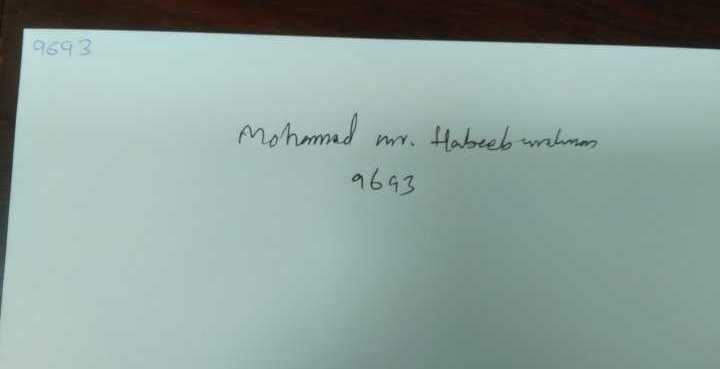 9693
Mohammad mr. Habeeburrahman
9693